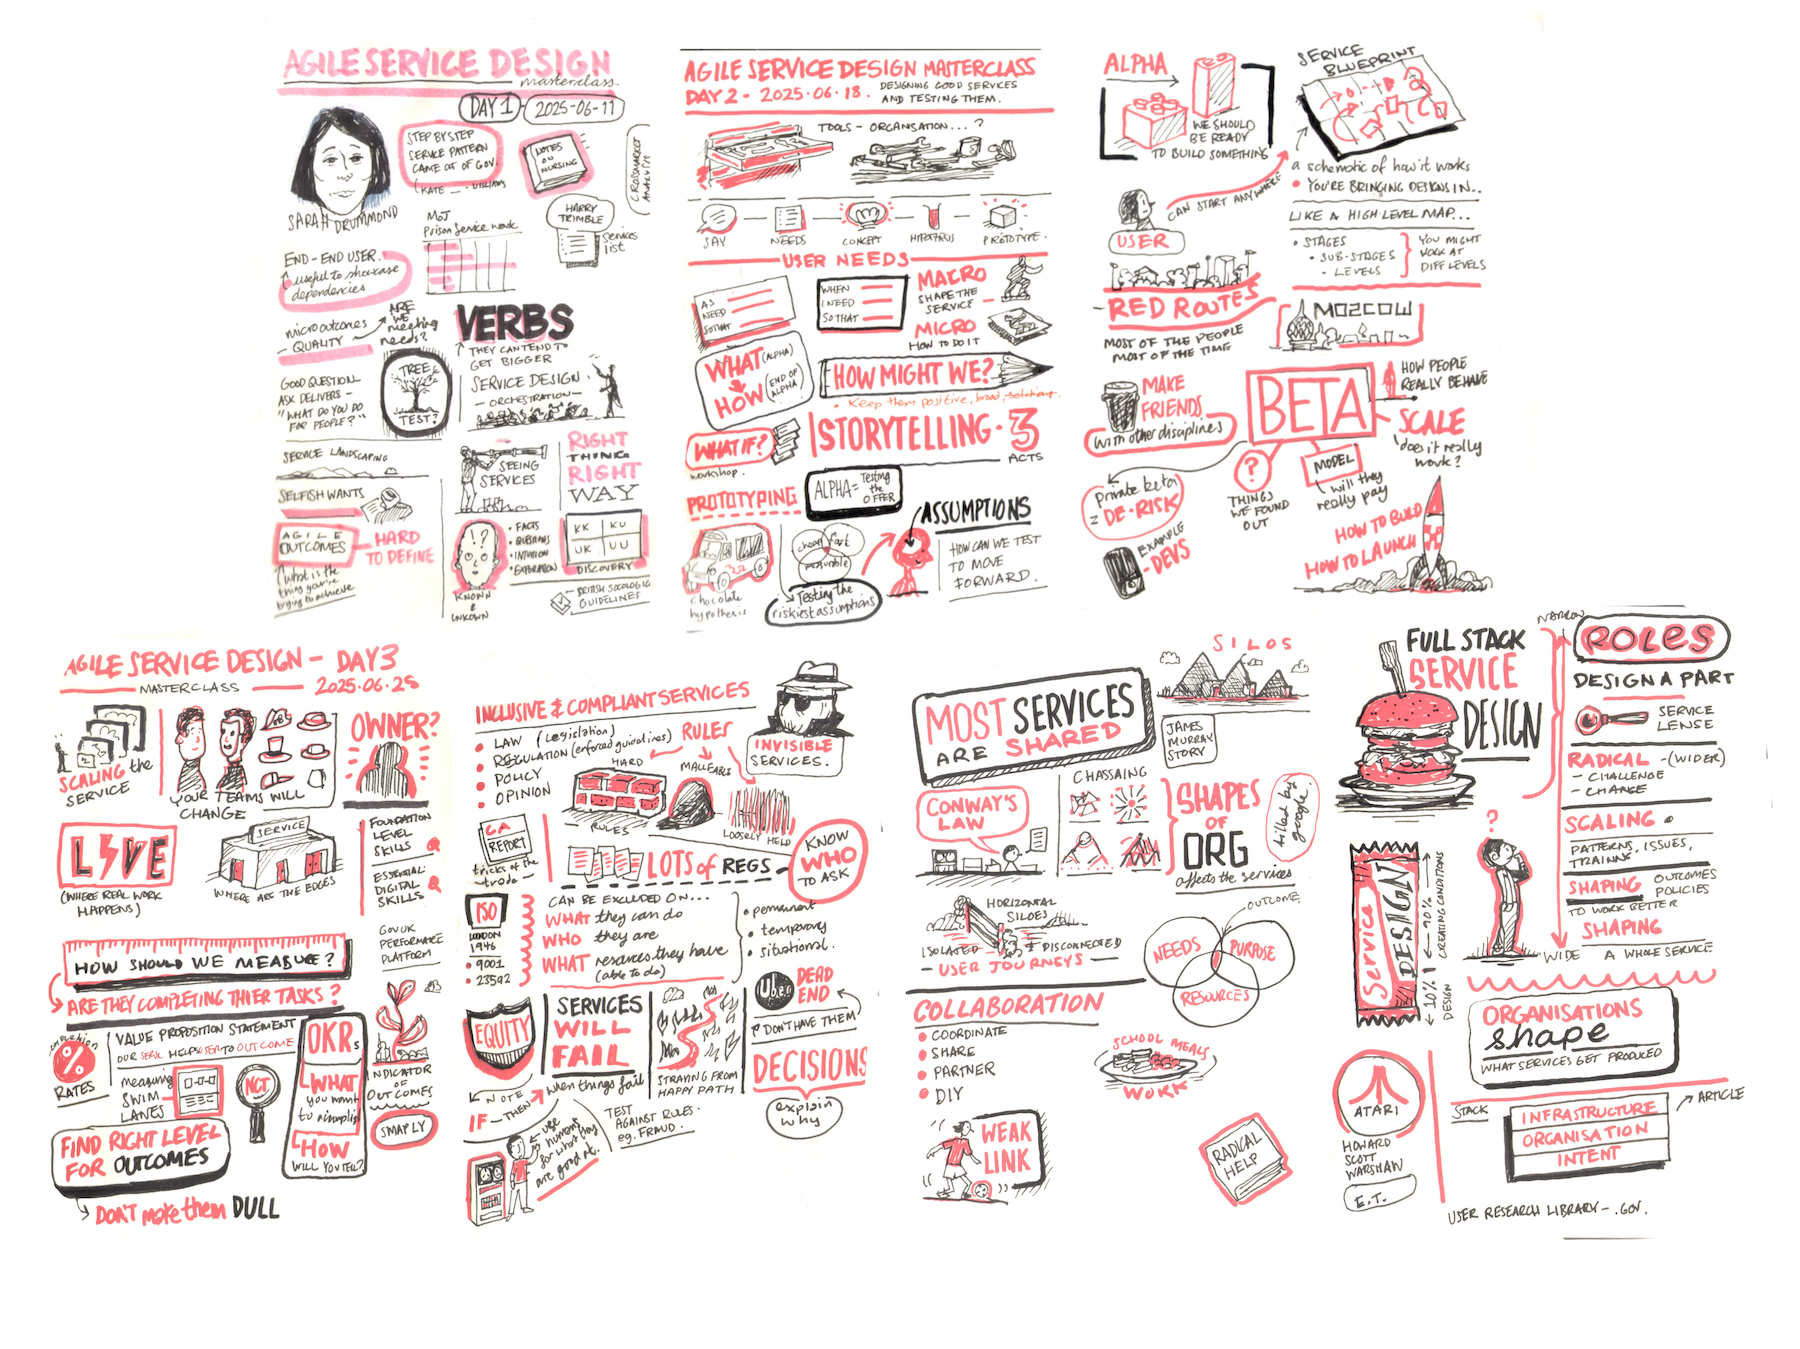 AGILE SERVICE DESIGN
masterclass.
DAY 1 - 2025-06-11
SARAH DRUMMOND
STEP BY STEP
SERVICE PATTERN
CAME OUT OF GOV.
(KATE
WILLIAMS
NOTES
ON
NURSING
CROSSMARKET
ANALYSIS
HARRY
TRIMBLE
services
list
MoJ
Prison service work
END-END USER.
useful to showcase
dependencies
micro outcomes
QUALITY
ARE
WE
meeting
needs?
VERBS
THEY CAN TEND TO
GET BIGGER
GOOD QUESTION
ASK DELIVERS -
"WHAT DO YOU DO
FOR PEOPLE?"
TREE
TEST?
SERVICE DESIGN
- ORCHESTRATION -
SERVICE LANDSCAPING
SEEING
SERVICES
RIGHT
THING
RIGHT
WAY
SELFISH WANTS
AGILE
OUTCOMES
HARD
TO DEFINE
what is the
thing you're
trying to achieve
!?
KNOWN
&
UNKNOWN
• FACTS
• QUESTIONS
• INTUITION
• EXPLORATION
KK KU
UK UU
DISCOVERY
GUIDELINES
AGILE SERVICE DESIGN MASTERCLASS
DAY 2 - 2025.06.18.
DESIGNING GOOD SERVICES
AND TESTING THEM.
TOOLS - ORGANISATION...?
SAY
NEEDS
CONCEPT
HYPOTHESIS
PROTOTYPE.
USER NEEDS
AS
NEED
SO THAT
WHEN
I NEED
SO THAT
MACRO
SHAPE THE
SERVICE
MICRO
HOW TO DO IT
WHAT (ALPHA)
HOW (END OF ALPHA)
HOW MIGHT WE?
• Keep them positive, broad, solutions.
WHAT IF?
workshop.
STORYTELLING - 3
ACTS
PROTOTYPING
ALPHA = Testing
the
OFFER
chocolate
hypothesis
cheap
fast
measurable
Testing the
riskiest assumptions
ASSUMPTIONS
HOW CAN WE TEST
TO MOVE
FORWARD.
ALPHA
WE SHOULD
BE READY
TO BUILD SOMETHING
SERVICE
BLUEPRINT
a schematic of how it works
• YOU'RE BRINGING DESIGNS IN..
LIKE A HIGH LEVEL MAP...
• STAGES
• SUB-STAGES
• LEVELS
YOU MIGHT
WORK AT
DIFF LEVELS
CAN START ANYWHERE
USER
RED ROUTES
MOST OF THE PEOPLE
MOST OF THE TIME
MOSCOW
MAKE
FRIENDS
with other disciplines
BETA
HOW PEOPLE
REALLY BEHAVE
SCALE
does it really
work?
private beta
= DE-RISK
EXAMPLE
- DEVS
?
THINGS
WE FOUND
OUT
MODEL
will they
really pay
HOW TO BUILD
HOW TO LAUNCH
AGILE SERVICE DESIGN - DAY 3
MASTERCLASS
2025.06.25
SCALING the
SERVICE
YOUR TEAMS WILL
CHANGE
OWNER?
LIVE
(WHERE REAL WORK
HAPPENS)
SERVICE
WHERE ARE THE EDGES
FOUNDATION
LEVEL
SKILLS
ESSENTIAL
DIGITAL
SKILLS
GOV UK
PERFORMANCE
PLATFORM
HOW SHOULD WE MEASURE?
ARE THEY COMPLETING THIER TASKS?
completion
%
RATES
VALUE PROPOSITION STATEMENT
OUR SERVIC HELPS USER TO OUTCOME
measuring
SWIM
LANES
NCT.
OKRs
WHAT
you want
to accomplish
HOW
WILL YOU TELL?
INDICATOR
OF
OUTCOMES
SMAPLY
FIND RIGHT LEVEL
FOR OUTCOMES
DON'T make them DULL
INCLUSIVE & COMPLIANT SERVICES
• LAW (Legislation)
• REGULATION (enforced guidelines)
• POLICY
• OPINION
RULES
HARD
MALLEABLE
RULES
LOOSELY HELD
INVISIBLE
SERVICES.
CA
REPORT
tricks of the
trade
LOTS of REGS
KNOW
WHO
TO ASK
ISO
LONDON
1946
• 9001
• 23592
CAN BE EXCLUDED ON...
WHAT they can do
WHO they are
WHAT resources they have
(able to do)
• permanent
• temporary
• situational.
EQUITY
SERVICES
WILL
FAIL
when things fail
STRAYING FROM
HAPPY PATH
Uber
DEAD
END
DON'T HAVE THEM
DECISIONS
explain
why
NOTE
IF - THEN
use
humans
for what they
are good at.
TEST
AGAINST RULES.
eg. FRAUD.
MOST SERVICES
ARE SHARED
SILOS
JAMES
MURRAY
STORY
CONWAY'S
LAW
CHASSAING
SHAPES
OF
ORG
affects the services
killed by
google.
HORIZONTAL
SILOES
ISOLATED & DISCONNECTED
- USER JOURNEYS -
OUTCOME
NEEDS
PURPOSE
RESOURCES
COLLABORATION
• COORDINATE
• SHARE
• PARTNER
• DIY
SCHOOL MEALS
WORK
WEAK
LINK
RADICAL
HELP
FULL STACK
SERVICE
DESIGN
NARROW
ROLES
DESIGN A PART
SERVICE
LENSE
RADICAL - (WIDER)
- CHALLENGE
- CHANGE
SCALING
PATTERNS, ISSUES,
TRAINING
SHAPING OUTCOMES
POLICIES
TO WORK BETTER
SHAPING
WIDE A WHOLE SERVICE
?
Service
DESIGN
10% DESIGN
90% CREATING CONDITIONS
ORGANISATIONS
shape
WHAT SERVICES GET PRODUCED
ATARI
HOWARD
SCOTT
WARSHAW
E.T.
STACK
INFRASTRUCTURE
ORGANISATION
INTENT
ARTICLE
USER RESEARCH LIBRARY - .GOV.